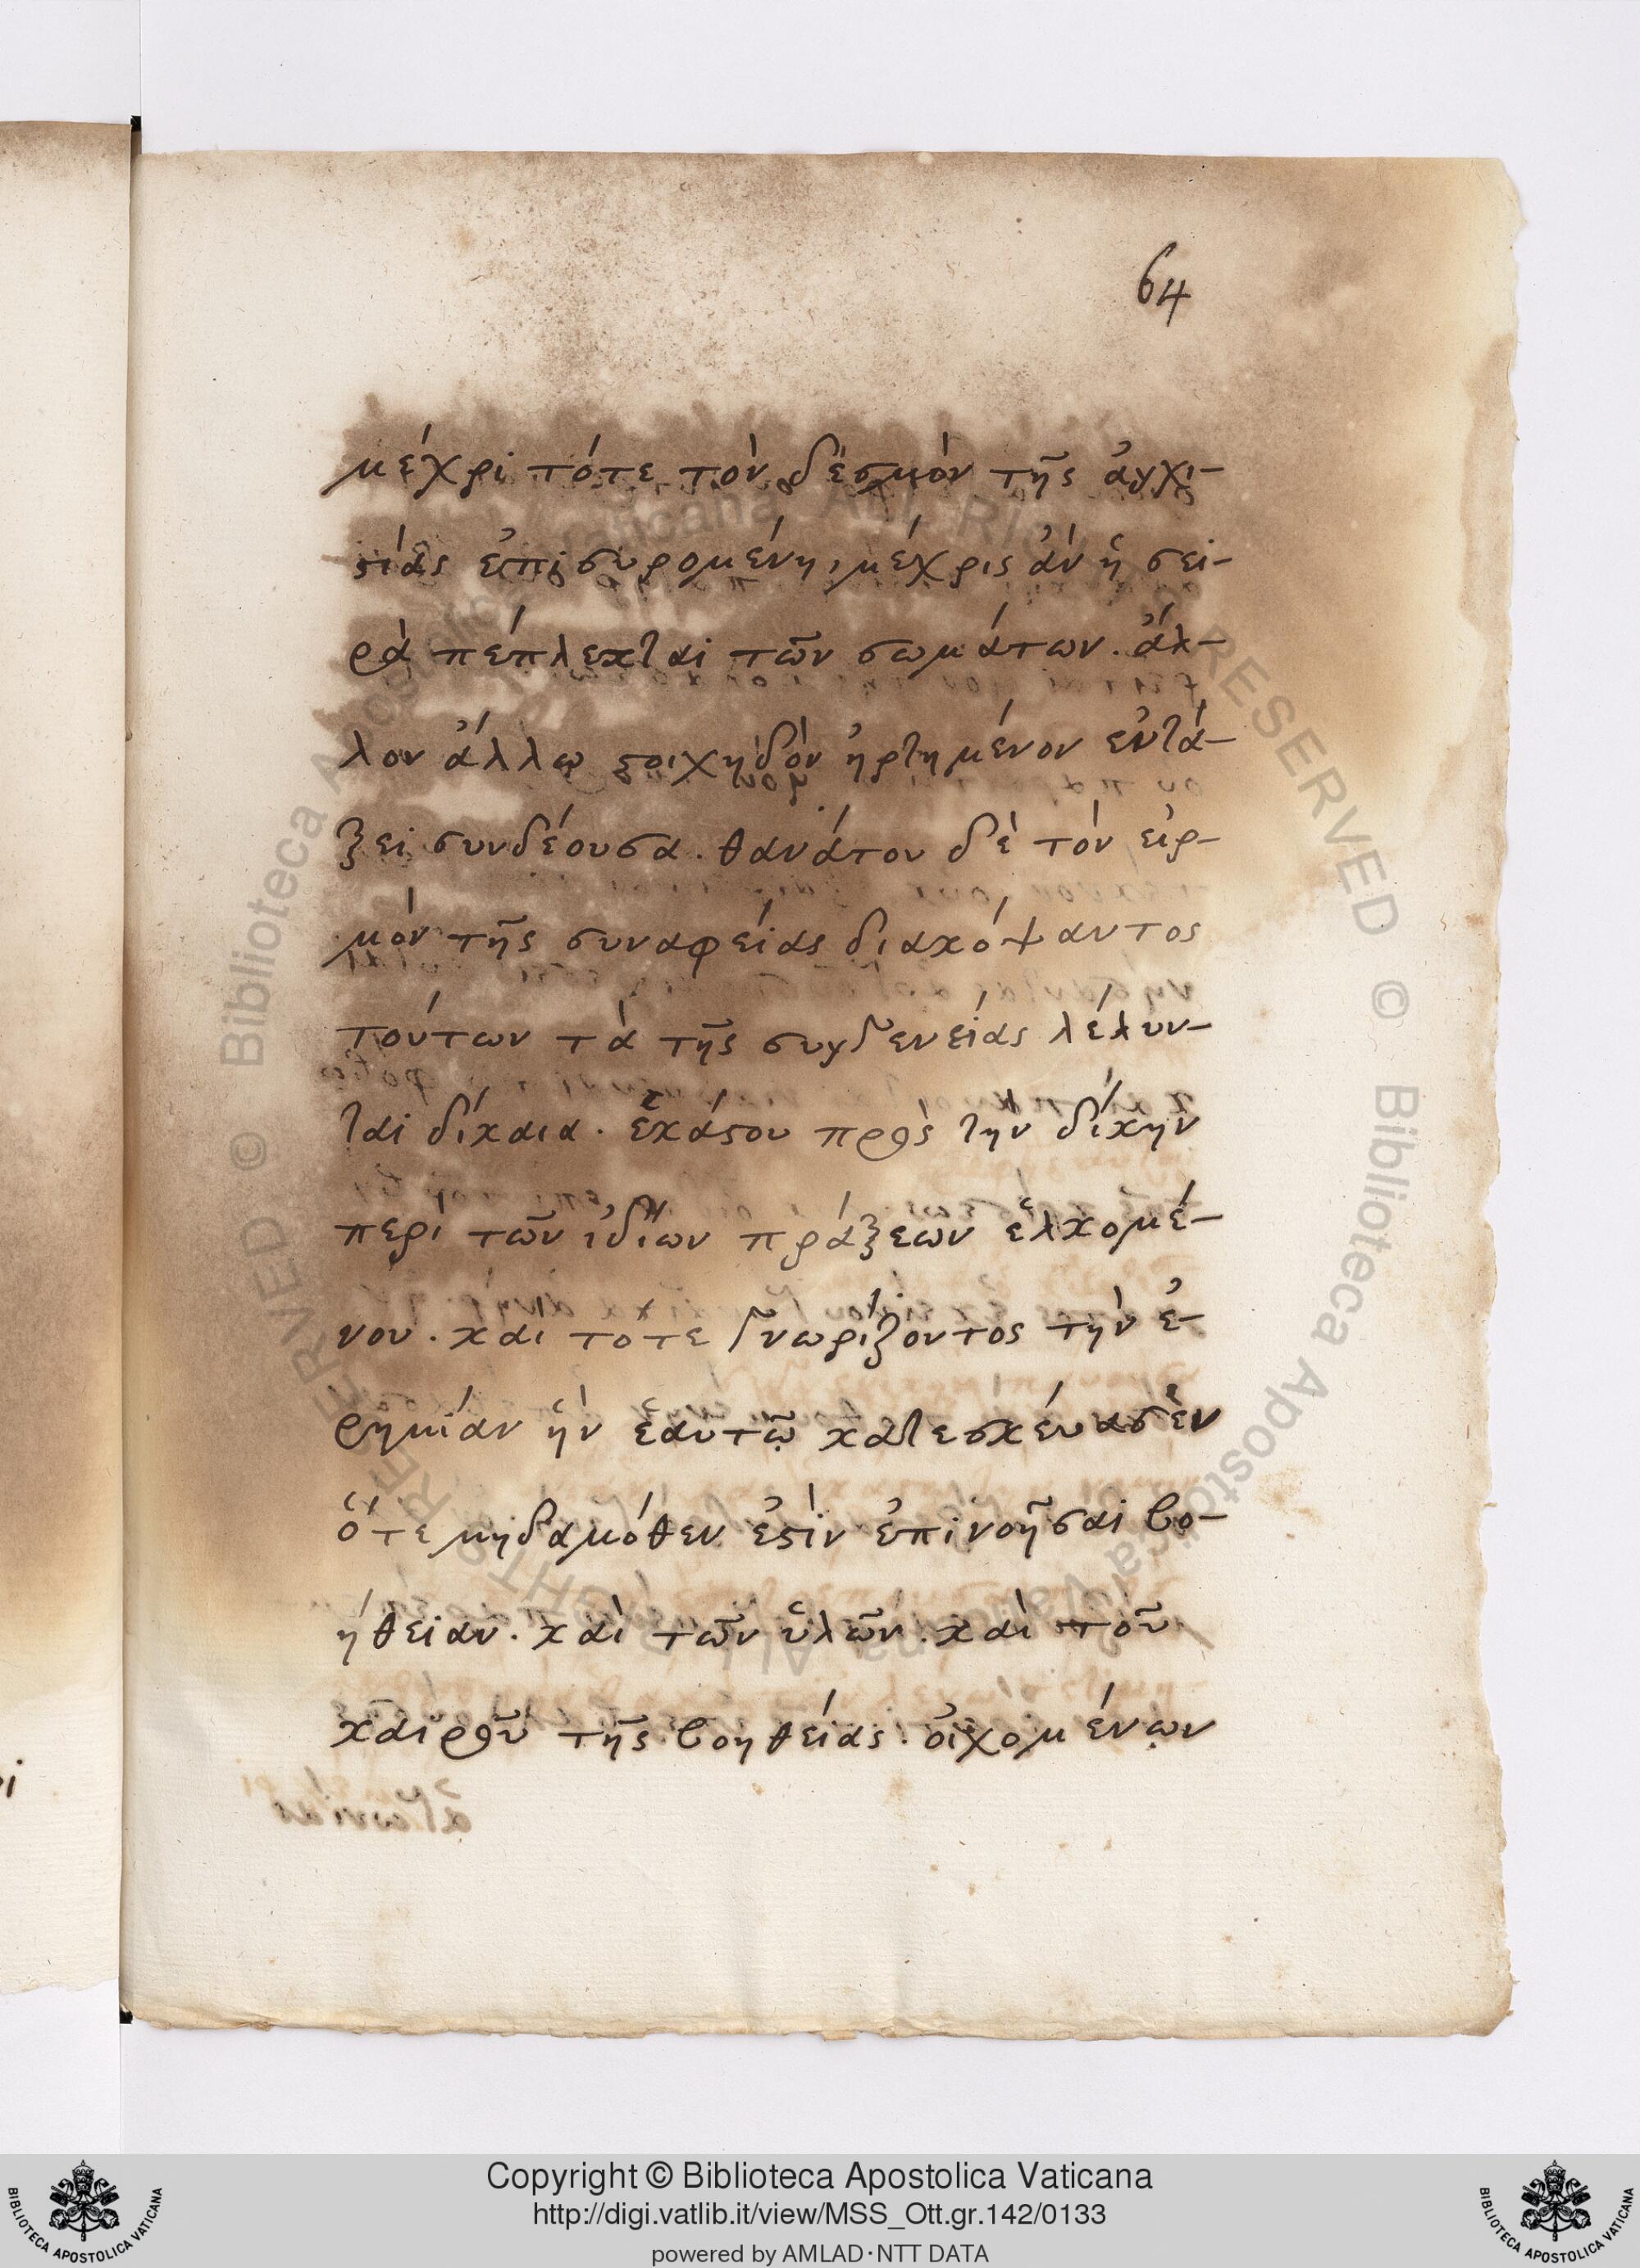 64
μέχρι τότε τὸν δεσμὸν τῆς ἀγχι-
ςίας ἐπισυρομένη, μέχρις ἂν ἡ σει-
ρὰ πέπλεκται τῶν σωμάτων. ἄλ-
λον ἄλλῳ ςοιχηδὸν ἠρτημένον ἐντά-
ξει συνδέουσα. θανάτου δὲ τὸν εἱρ-
μὸν τῆς συναφείας διακόψαντος
τούτων τὰ τῆς συγγενείας λέλυν-
ται δίκαια. ἑκάςου πρὸς τὴν δίκην
περὶ τῶν ἰδίων πράξεων ἑλκομέ-
νου. καὶ τότε γνωρίζοντος τὴν ἐ-
ρημίαν ἣν ἑαυτῷ κατεσκεύασεν
ὅτε μηδαμόθεν ἐςὶν ἐπινοῆσαι βο-
ήθειαν. καὶ τῶν ὑλῶν. καὶ τοῦ
καιροῦ τῆς βοηθείας. οἰχομένων
Copyright © Biblioteca Apostolica Vaticana
http://digi.vatlib.it/view/MSS_Ott.gr.142/0133
powered by AMLAD·NTT DATA
BIBLIOTECA APOSTOLICA VATICANA
BIBLIOTECA APOSTOLICA VATICANA